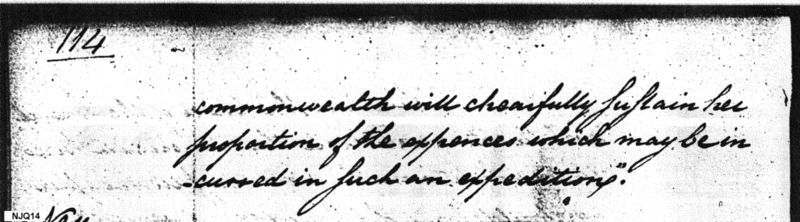 114
commonwealth will chearfully sustain her
proportion of the expences which may be in
-curred in such an expedition".
NJQ14